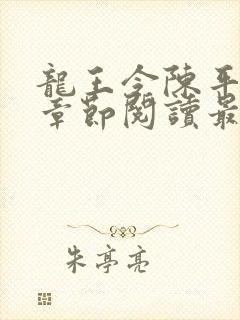 龍王令陳平
章節閱讀最
朱亭亮